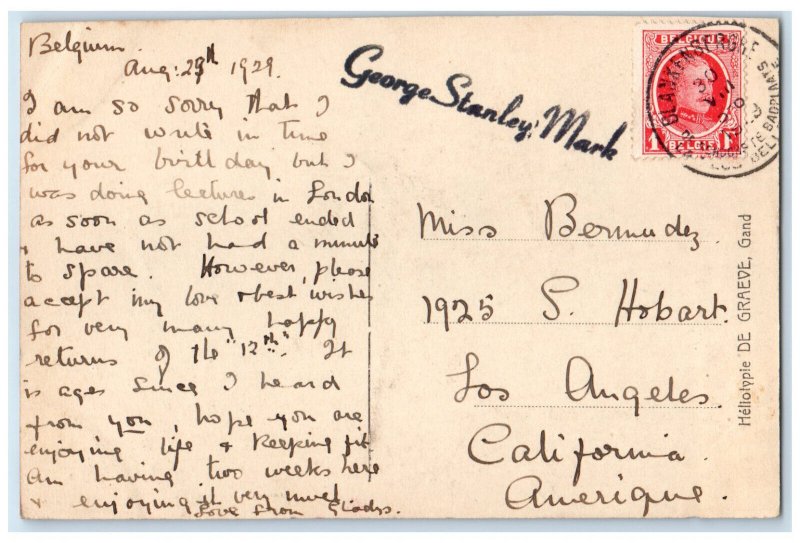 Belgium.
Aug: 29th 1929.
I am so sorry that I
did not write in time
for your birthday but I
was doing lectures in London
as soon as school ended
& have not had a minute
to spare. However, please
accept my love & best wishes
for very many happy
returns of the "12th." It
is ages since I heard
from you, hope you are
enjoying life & keeping fit
Am having two weeks here
& enjoying it very much
Love from Gladys.
George Stanley, Mark
BELGIQUE
1F 1F
BELGIË
BLANKENBERGHE
30
Miss Bermudez.
1925 S. Hobart.
Los Angeles.
California.
Amerique.
Héliotypie DE GRAEVE, Gand